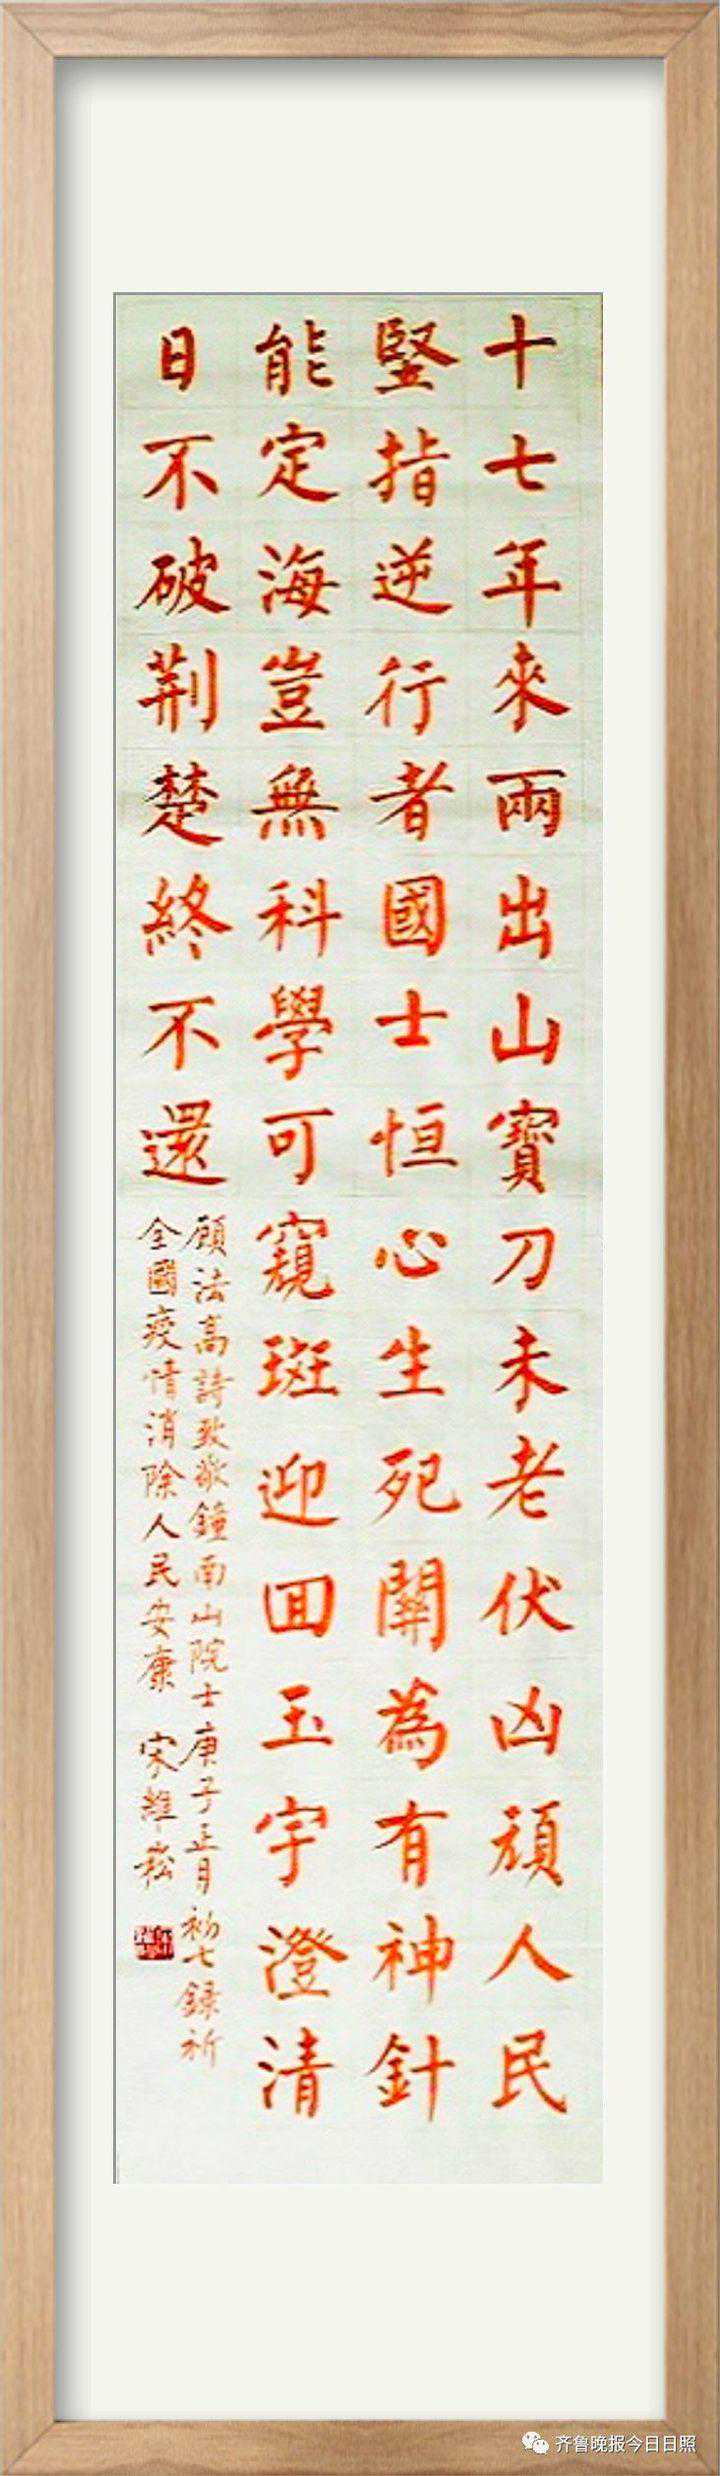 十七年來兩出山寶刀未老伏凶頑人民
竪指逆行者國士恒心生死關為有神針
能定海豈無科學可窺斑迎回玉宇澄清
日不破荆楚終不還
顧法高詩致敬鐘南山院士庚子正月初七録祈
全國疫情消除人民安康 宋維崧
齐鲁晚报今日日照